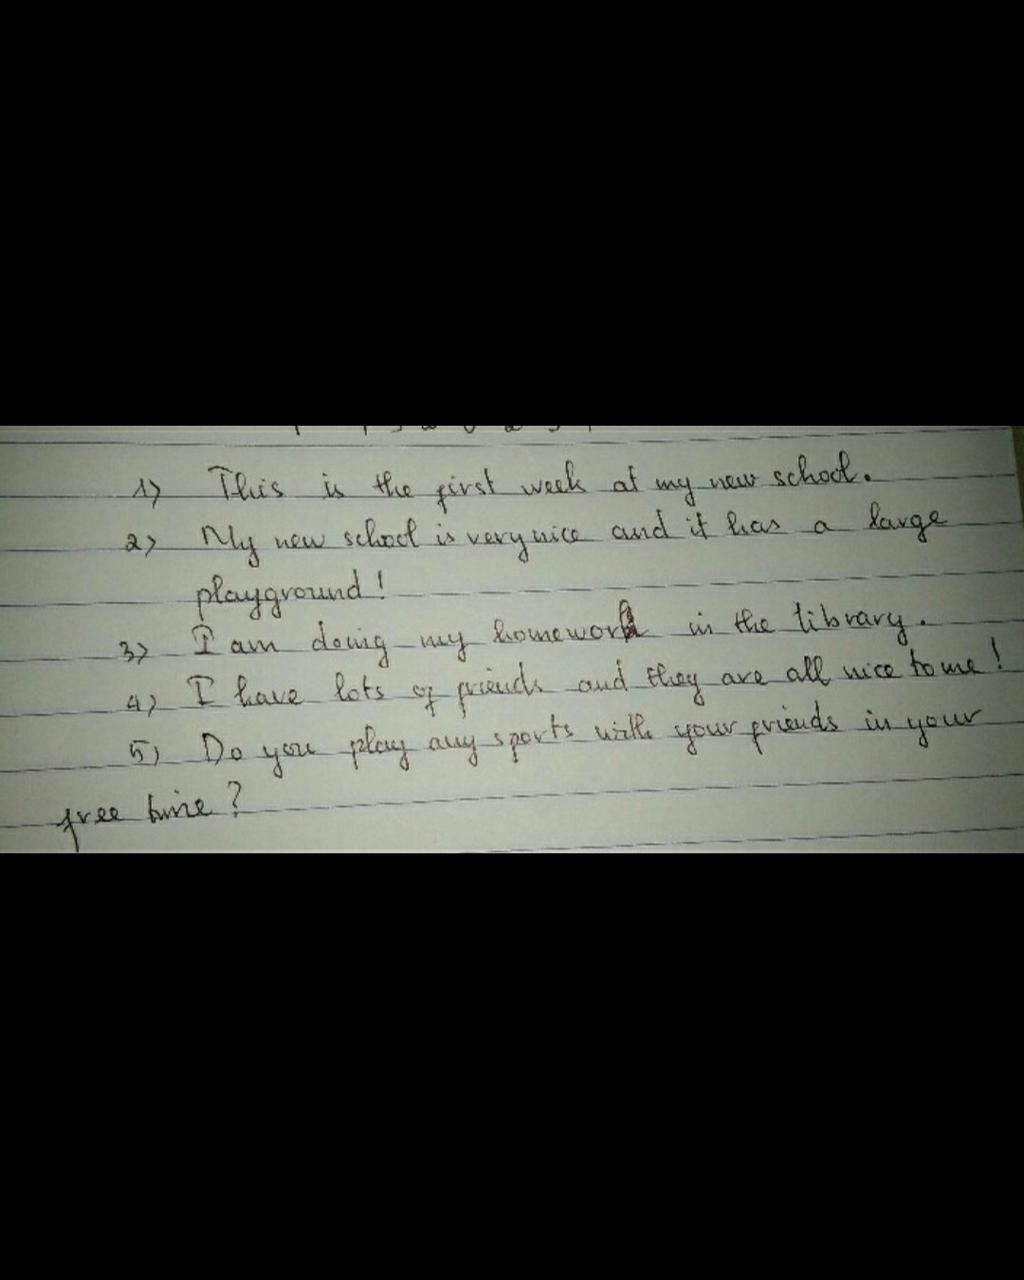 1) This is the first week at my new school.
2) My new school is very nice and it has a large
playground!
3) I am doing my homework in the library.
4) I have lots of friends and they are all nice to me!
5) Do you play any sports with your friends in your
free time?